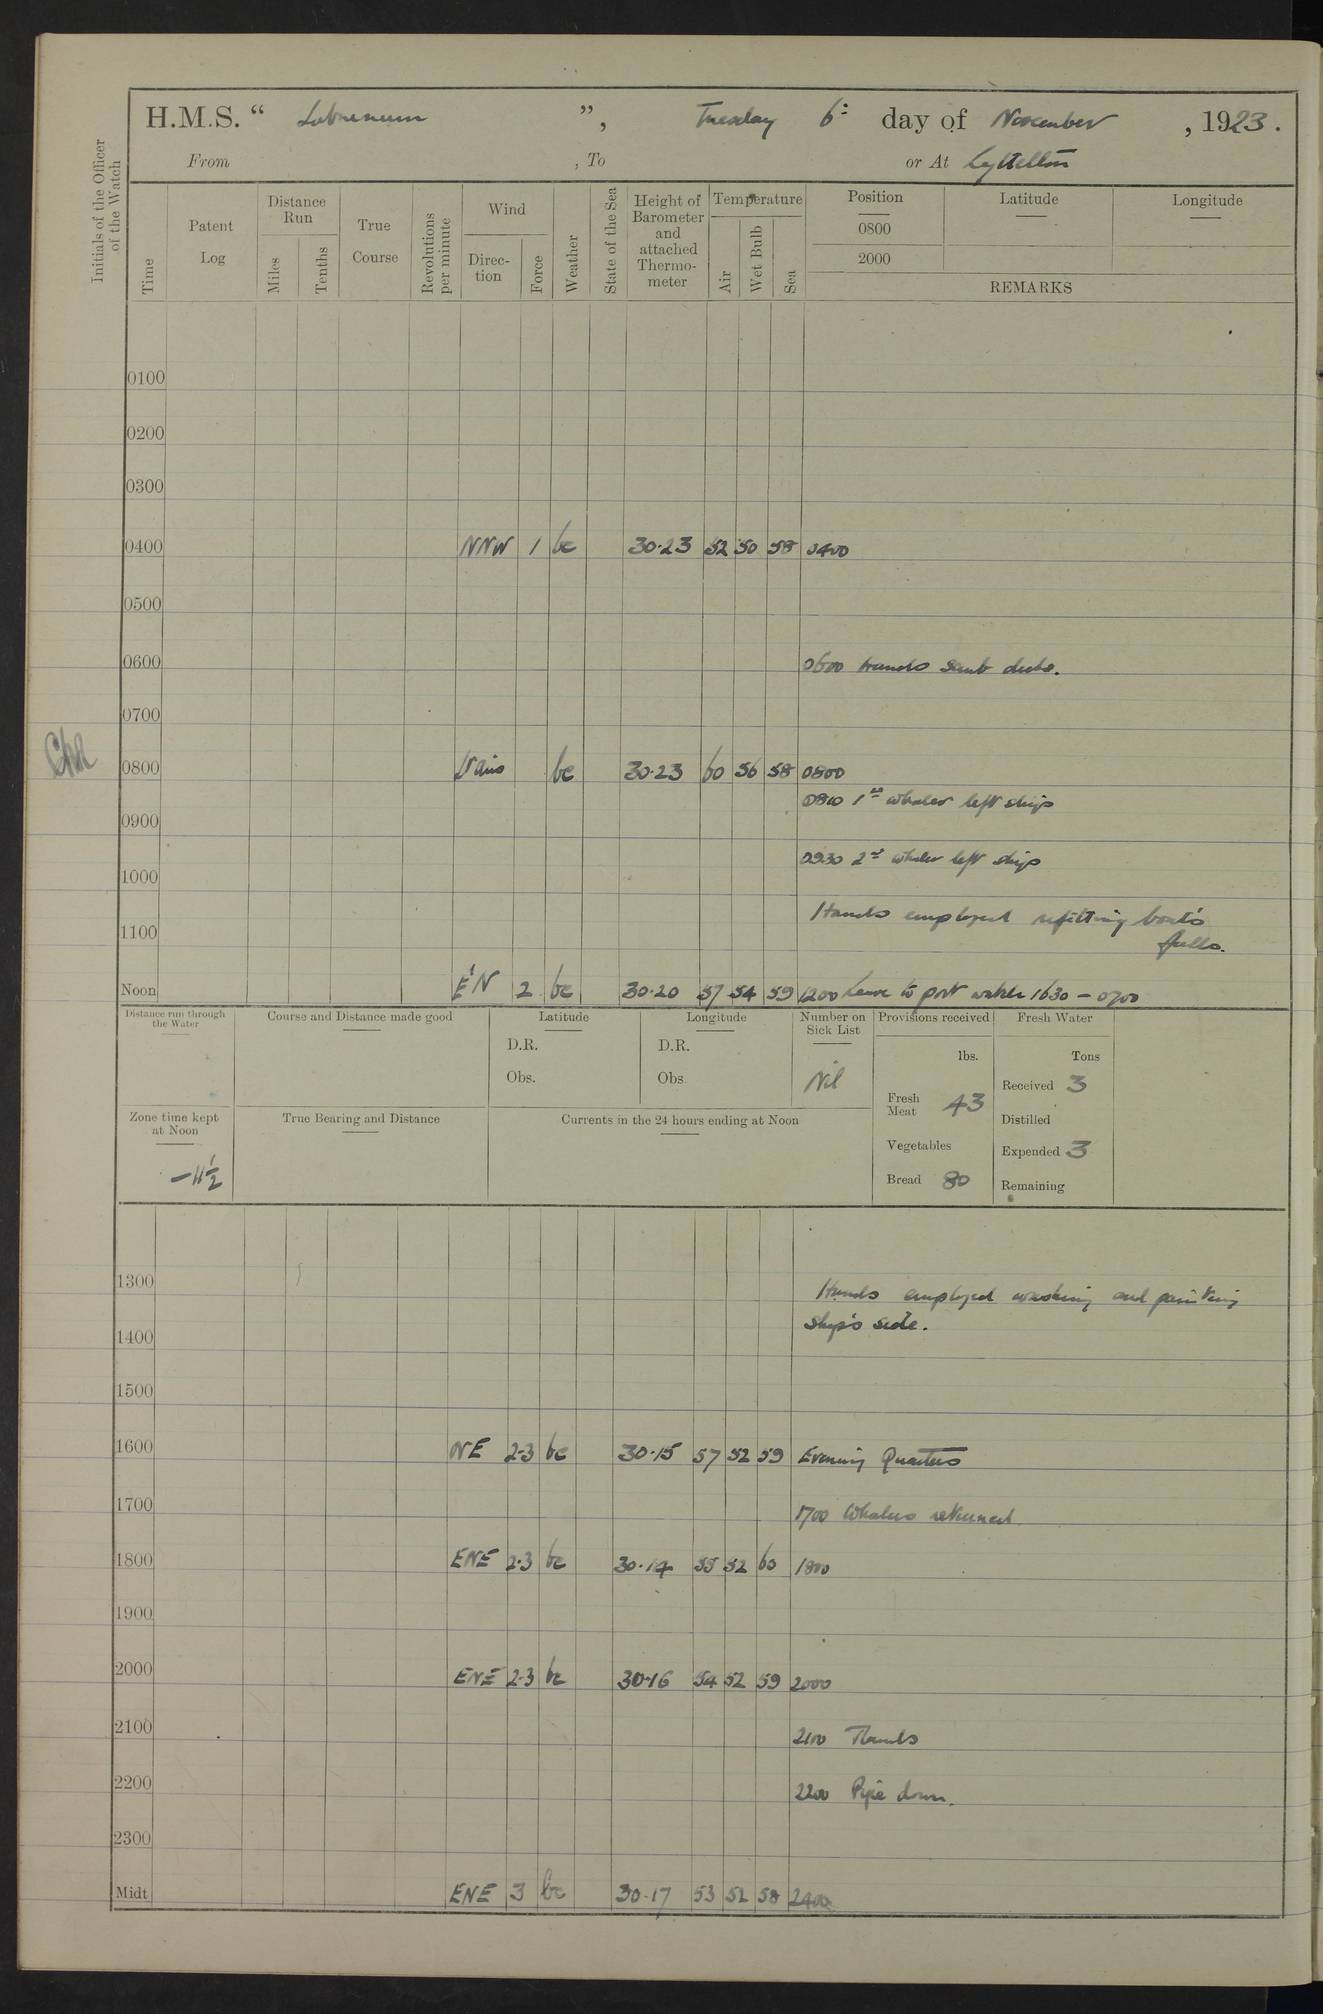 H.M.S. “ Laburnum ”, Tuesday 6th day of November, 1923.
From , To or At Lyttelton
Initials of the Officer of the Watch
Time
Patent Log
Distance Run
Miles
Tenths
True Course
Revolutions per minute
Wind
Direc-tion
Force
Weather
State of the Sea
Height of Barometer and attached Thermo-meter
Temperature
Air
Wet Bulb
Sea
Position Latitude Longitude
0800
2000
REMARKS
0100
0200
0300
0400 NNW 1 bc 30.23 52 50 58 0400
0500
0600 0600 Hands scrub decks.
0700
0800 Vario bc 30.23 60 56 58 0800
0810 1st whaler left ship
0900
0930 2nd whaler left ship
1000
Hands employed refitting boat's
1100 falls.
Noon E'N 2 bc 30.20 57 54 59 1200 Leave to port watch 1630 - 0700
Distance run through the Water
Course and Distance made good
Latitude
D.R.
Obs.
Longitude
D.R.
Obs.
Number on Sick List
Nil
Provisions received
lbs.
Fresh Meat 43
Vegetables
Bread 80
Fresh Water
Tons
Received 3
Distilled
Expended 3
Remaining
Zone time kept at Noon
-11½
True Bearing and Distance
Currents in the 24 hours ending at Noon
1300 Hands employed washing and painting
ship's side.
1400
1500
1600 NE 2-3 bc 30.15 57 52 59 Evening Quarters
1700 1700 Whalers returned
1800 ENE 2-3 bc 30.14 55 52 60 1800
1900
2000 ENE 2-3 bc 30.16 54 52 59 2000
2100 2100 Rounds
2200 2200 Pipe down.
2300
Midt ENE 3 bc 30.17 53 52 58 2400